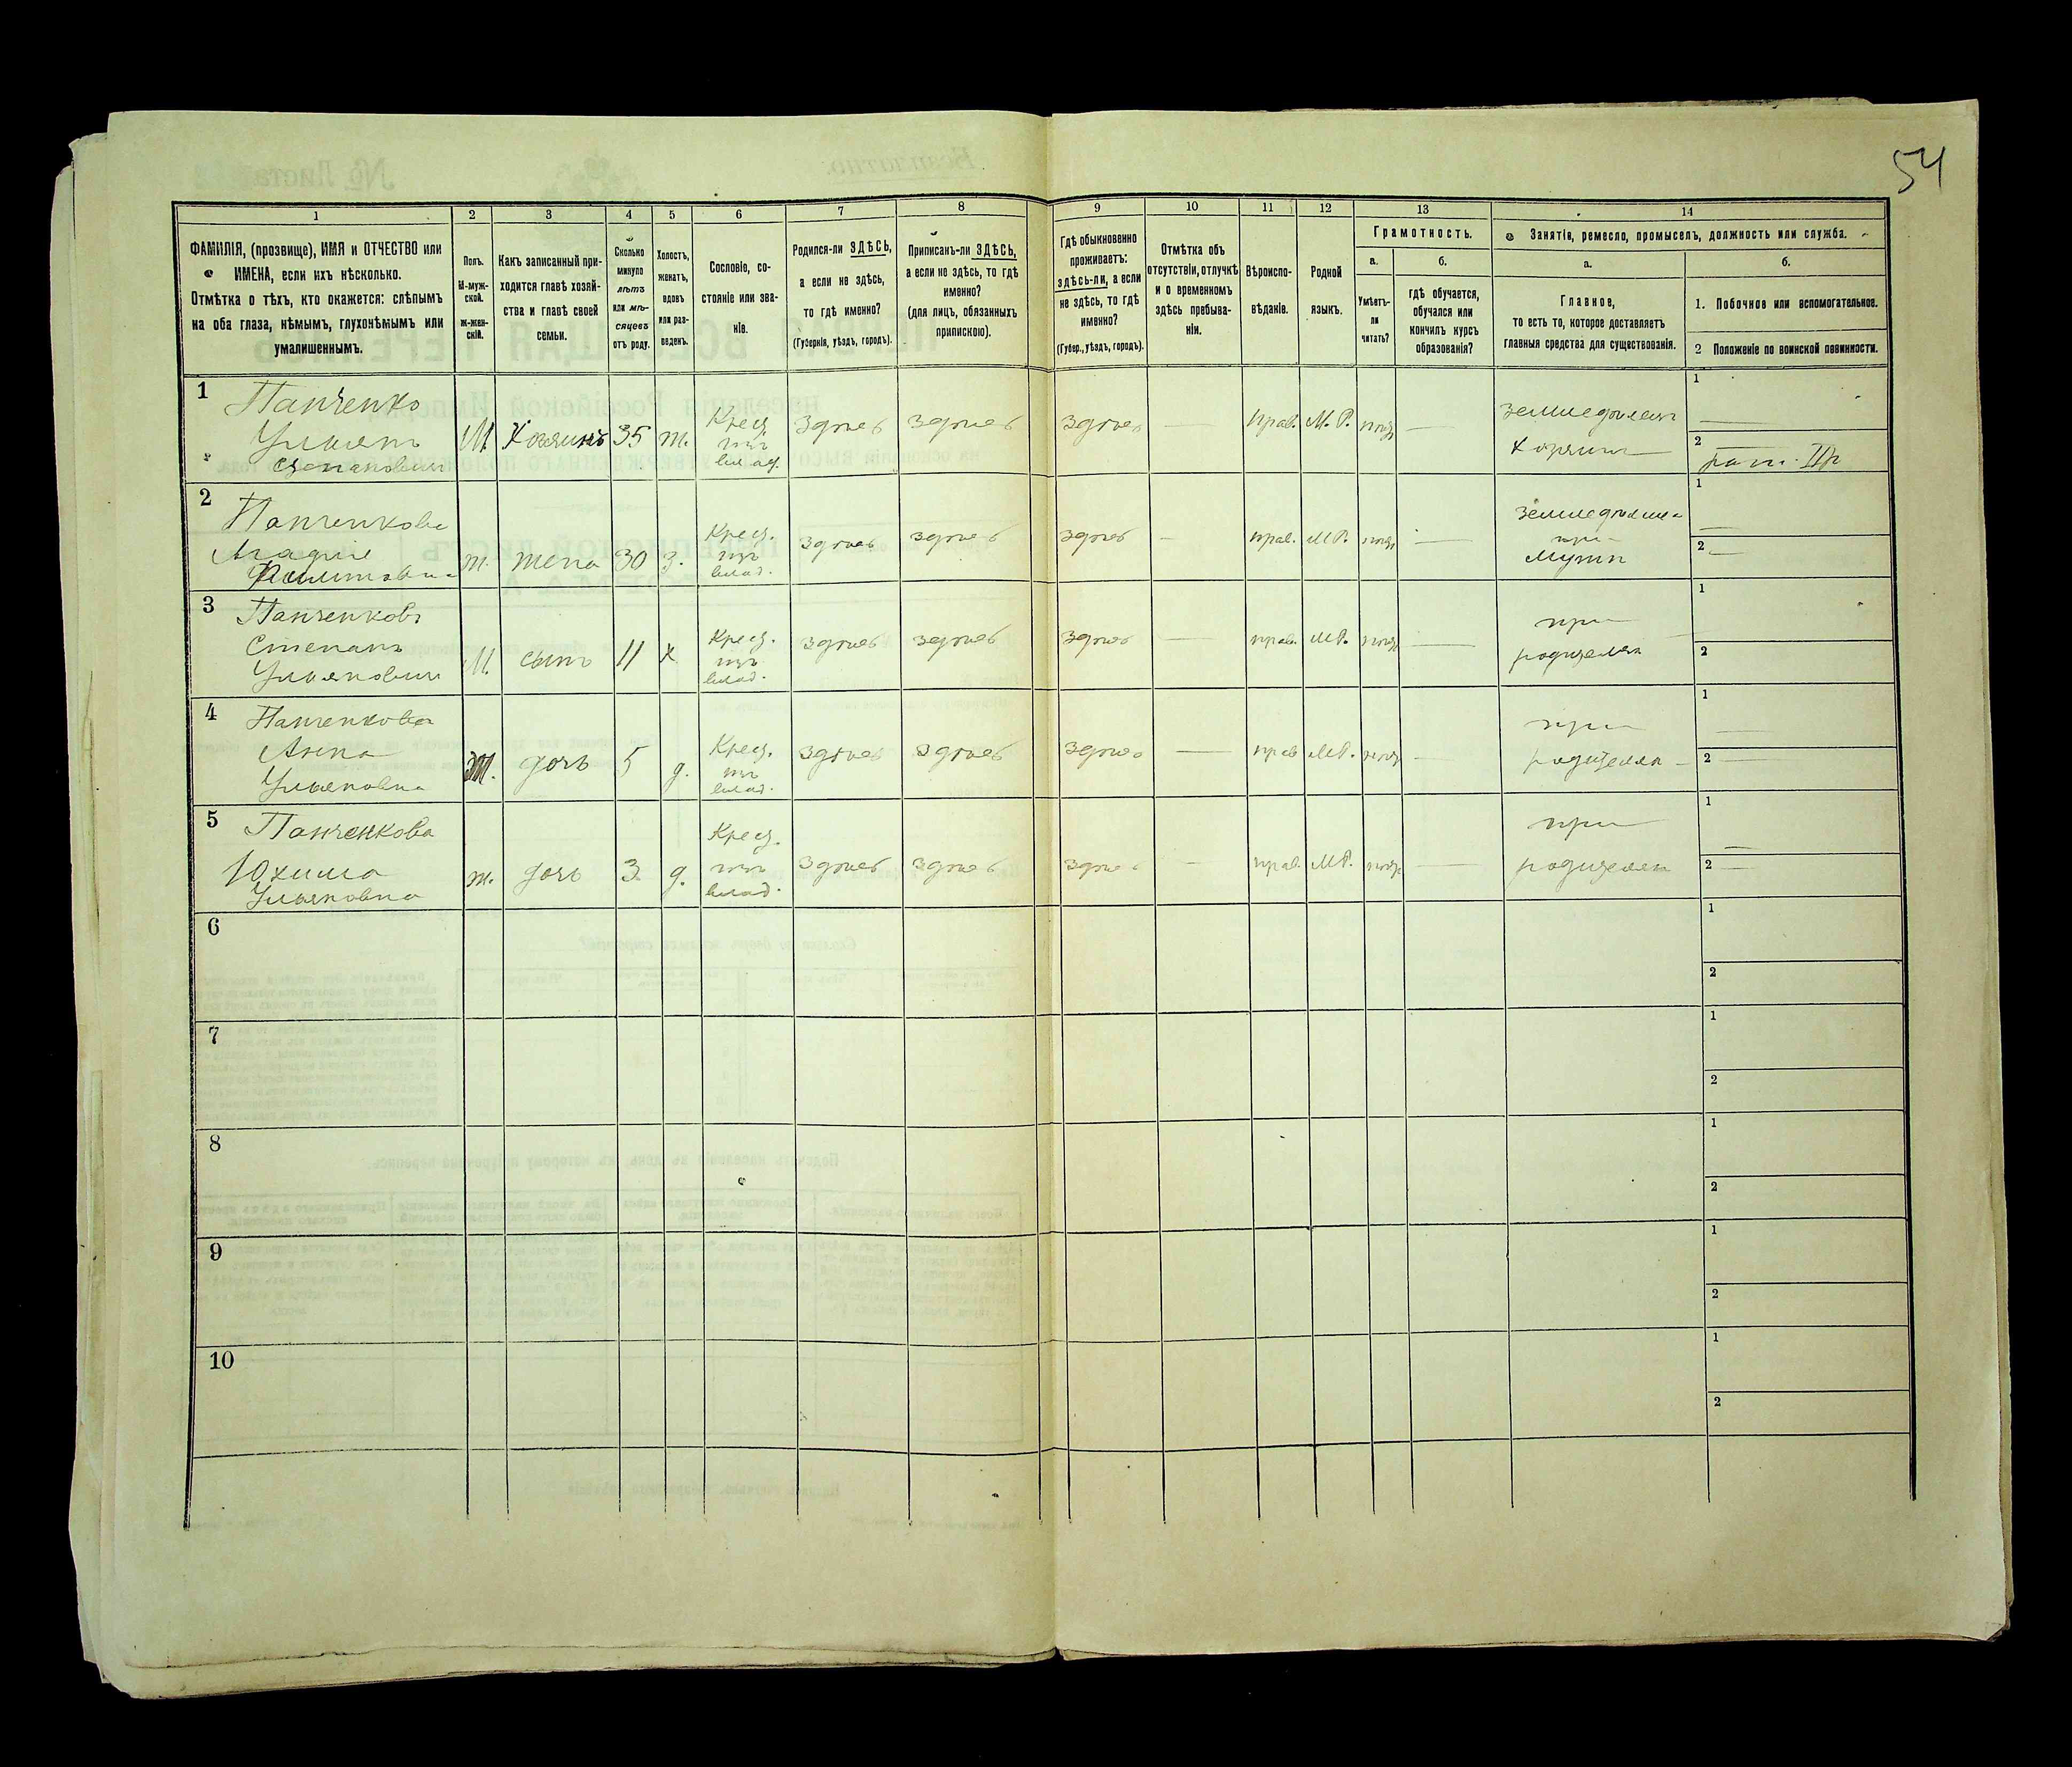 54
1 2 3 4 5 6 7 8 9 10 11 12 13 14
ФАМИЛІЯ, (прозвище), ИМЯ и ОТЧЕСТВО или
ИМЕНА, если ихъ нѣсколько.
Отмѣтка о тѣхъ, кто окажется: слѣпымъ
на оба глаза, нѣмымъ, глухонѣмымъ или
умалишеннымъ.
Полъ.
М-муж-
ской.
Ж-жен-
скій.
Какъ записанный при-
ходится главѣ хозяй-
ства и главѣ своей
семьи.
Сколько
минуло
лѣтъ
или мѣ-
сяцевъ
отъ роду.
Холостъ,
женатъ,
вдовъ
или раз-
веденъ.
Сословіе, со-
стояніе или зва-
ніе.
Родился-ли ЗДѢСЬ,
а если не здѣсь,
то гдѣ именно?
(Губернія, уѣздъ, городъ).
Приписанъ-ли ЗДѢСЬ,
а если не здѣсь, то гдѣ
именно?
(для лицъ, обязанныхъ
припискою).
Гдѣ обыкновенно
проживаетъ:
здѣсь-ли, а если
не здѣсь, то гдѣ
именно?
(Губер., уѣздъ, городъ).
Отмѣтка объ
отсутствіи, отлучкѣ
и о временномъ
здѣсь пребыва-
ніи.
Вѣроиспо-
вѣданіе.
Родной
языкъ.
Грамотность.
а.
Умѣетъ-
ли
читать?
б.
гдѣ обучается,
обучался или
кончилъ курсъ
образованія?
Занятія, ремесло, промыселъ, должность или служба.
а.
Главное,
то есть то, которое доставляетъ
главныя средства для существованія.
б.
1. Побочное или вспомогательное.
2 Положеніе по воинской повинности.
1
Панченко
Ульянъ
Степановичъ
М.
Хозяинъ
35
ж.
Крест.
изъ
влад.
здѣсь
здѣсь
здѣсь
—
прав.
М. Р.
—
земледѣлецъ
хозяинъ
1
—
2
рат. IIр
2
Панченкова
ж.
жена
30
з.
Крест.
изъ
влад.
здѣсь
здѣсь
здѣсь
—
прав.
М.Р.
—
при
мужѣ
1
—
2
—
3
Панченковъ
Степанъ
Ульяновичъ
М.
сынъ
11
х
Крест.
изъ
влад.
здѣсь
здѣсь
здѣсь
—
прав.
М.Р.
—
при
родителяхъ
1
2
4
Панченкова
Анна
Ульяновна
Ж.
дочь
5
д.
Крест.
изъ
влад.
здѣсь
здѣсь
здѣсь
—
прав
М.Р.
—
при
родителяхъ
1
—
2
—
5
Панченкова
Юхима
Ульяновна
ж.
дочь
3
д.
Крест.
изъ
влад.
здѣсь
здѣсь
здѣсь
—
прав.
М.Р.
—
при
родителяхъ
1
—
2
—
6
1
2
7
1
2
8
1
2
9
1
2
10
1
2